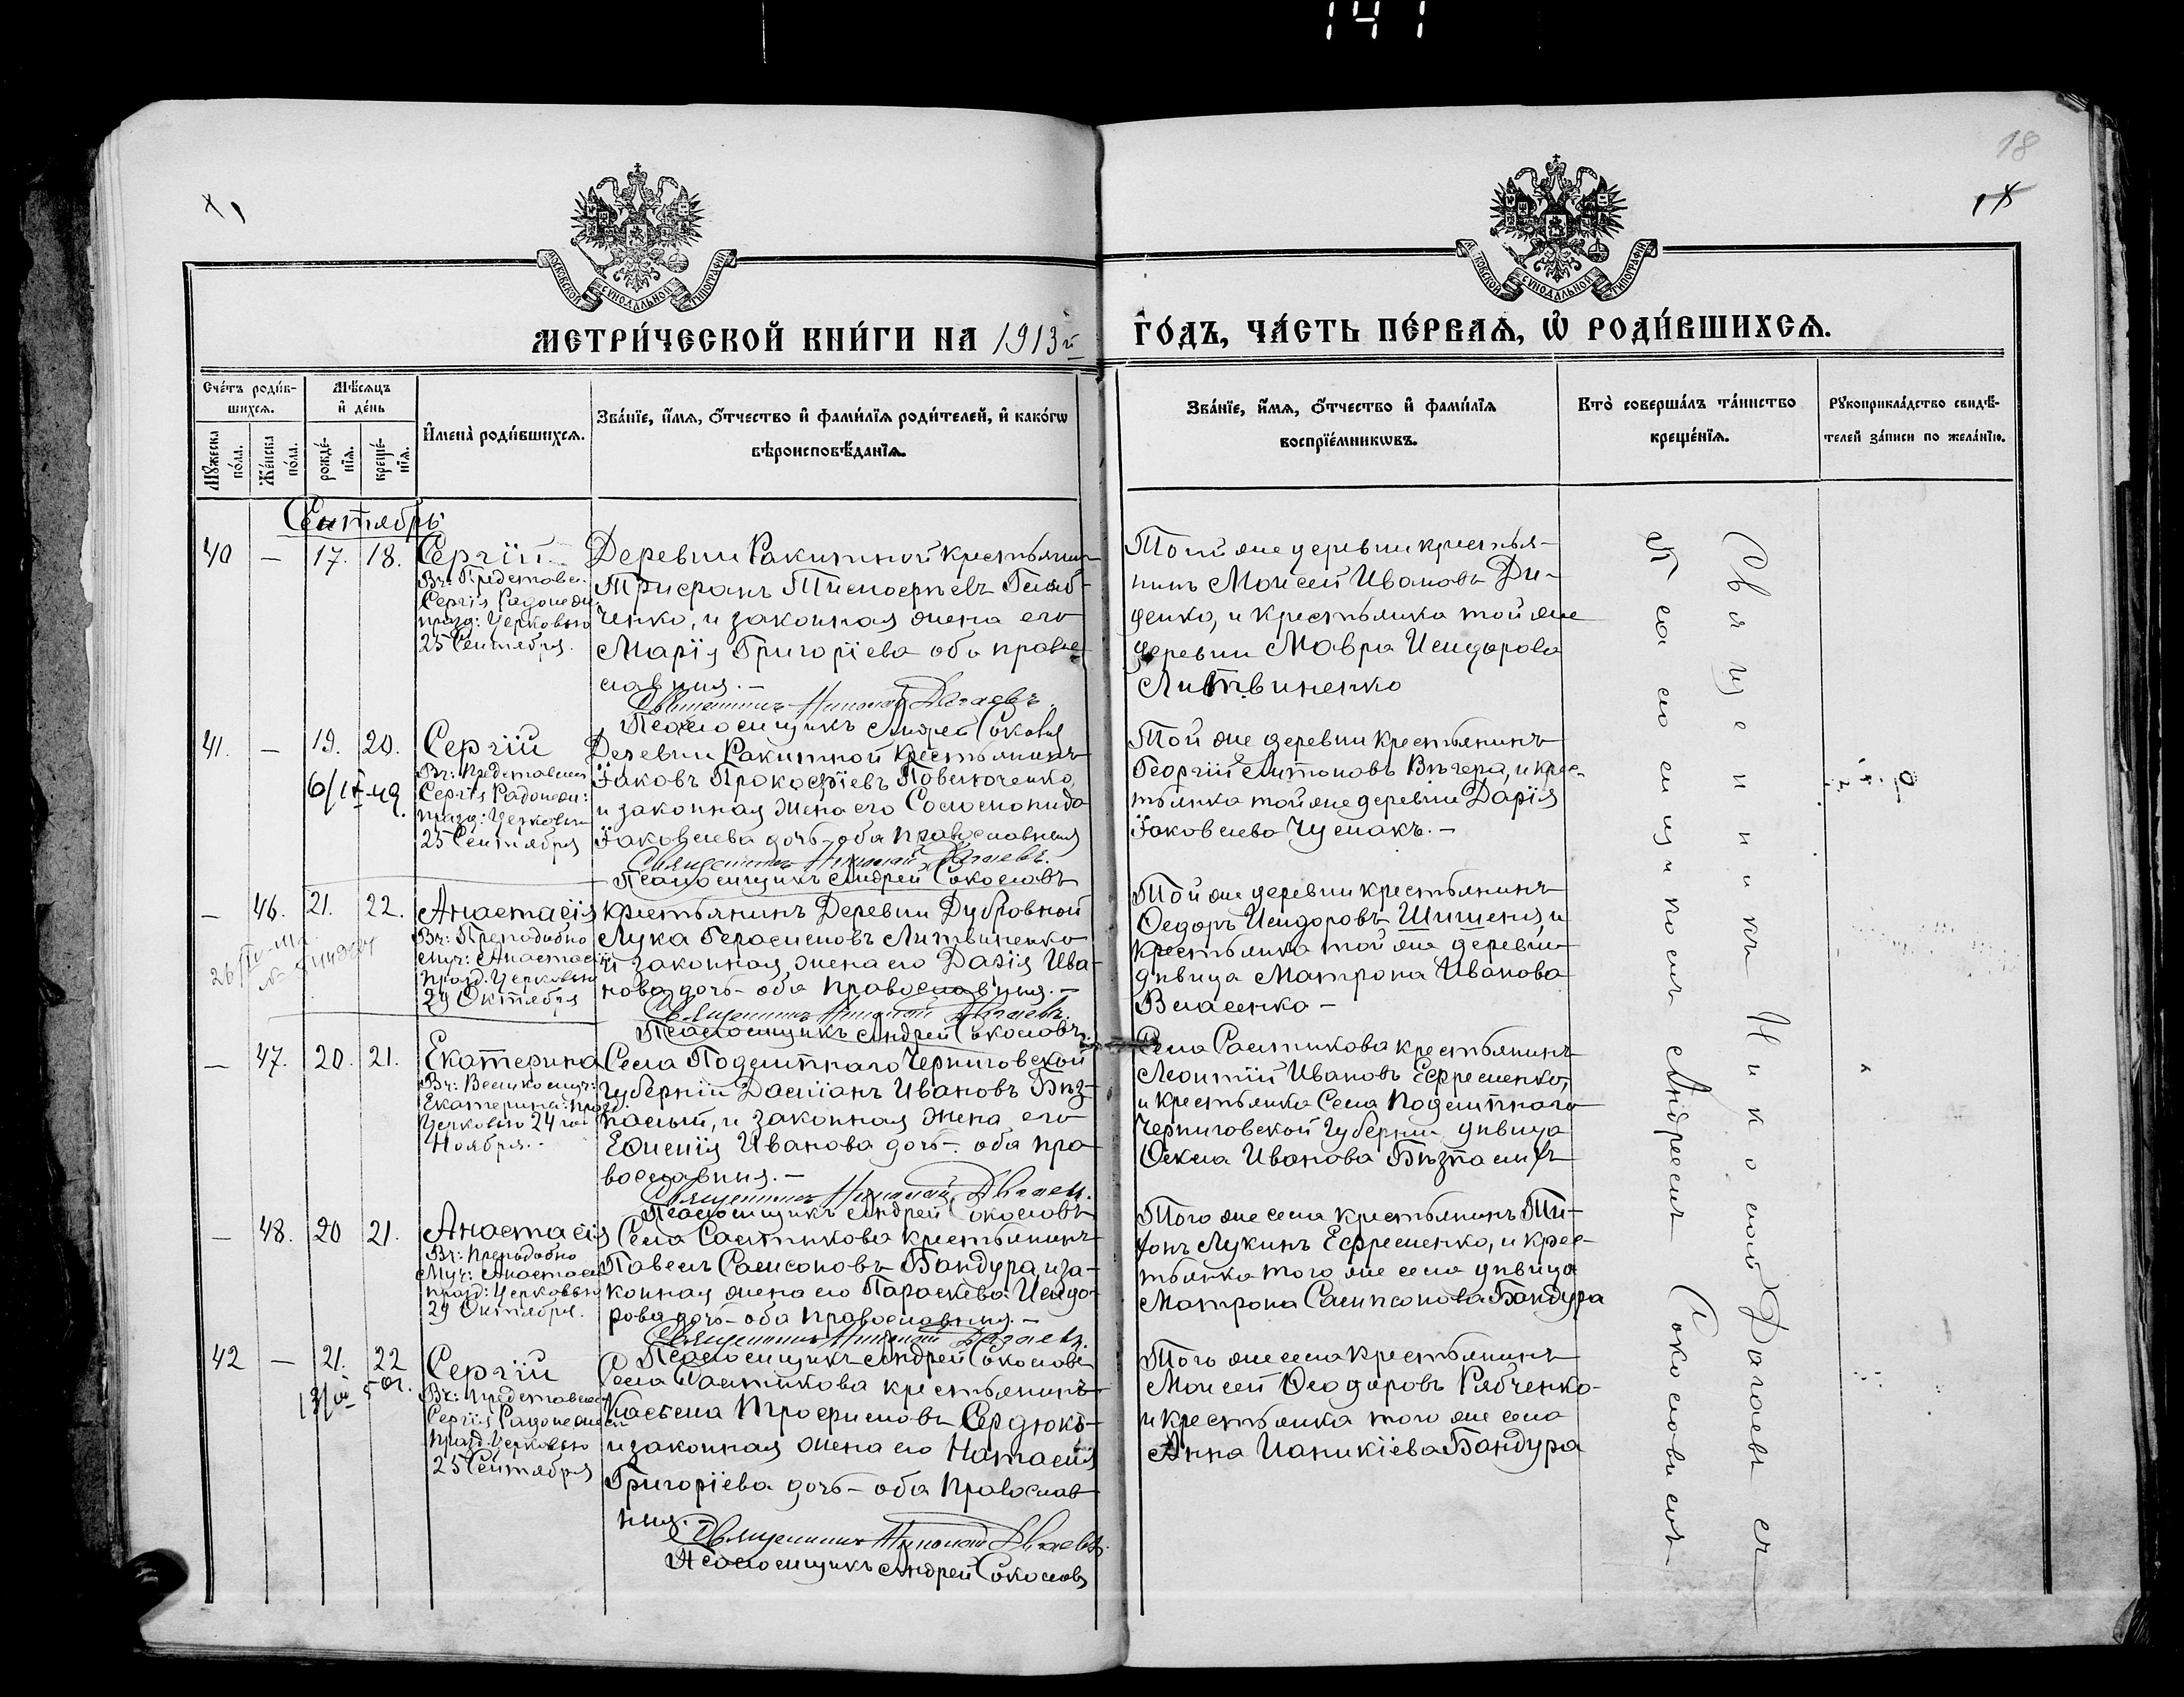 141
18
МОСКОВСКОЙ СУНОДАЛЬНОЙ ТИПОГРАФІИ
МОСКОВСКОЙ СУНОДАЛЬНОЙ ТИПОГРАФІИ
МЕТРИ́ЧЕСКОЙ КНИ́ГИ НА 1913й
ГО́ДЪ, ЧА́СТЬ ПЕ́РВАѦ, Ѡ҆ РОДИ́ВШИХСѦ.
Сче́тъ роди́в-
шихсѧ.
Мѣ́сѧцъ
и҆ де́нь
Мꙋ́жеска
по́ла.
Же́нска
по́ла.
рожде́-
нїѧ.
креще́-
нїѧ.
И҆мена̀ роди́вшихсѧ.
Зва́нїе, и҆́мѧ, ѻ҆́тчество и҆ фами́лїѧ роди́телей, и҆ како́гѡ
вѣроисповѣ́данїѧ.
Зва́нїе, и҆́мѧ, ѻ҆́тчество и҆ фами́лїѧ
воспрїе́мникѡвъ.
Кто̀ соверша́лъ та́инство
креще́нїѧ.
Рꙋкоприкла́дство свидѣ́-
телей за́писи по жела́нїю.
Сентябрь
40 — 17. 18. Сергій
Вч: Представл.
Сергія Радонеж:
празд: Церковью
25 Сентября.
Деревни Ракитной крестьянинъ
Трифонъ Тимофеевъ
ченко, и законная жена его
Марія Григоріева оба право
славныя.—
Священникъ Николай Дагаевъ.
Псаломщикъ Андрей Соколов
Той же деревни крестья-
нинъ Моисей Ивановъ Ди-
денко, и крестьянка той же
деревни Мавра Исидорова
Литвиненко
41. — 19. 20. Сергій
Вч: Представлен
Сергія Радонеж:
празд: Церковью
25 Сентября
Деревни Ракитной крестьянинъ
Іаковъ Прокофіевъ
и законная жена его Соломонида
Іаковлева дочь—оба православныя
Священникъ Николай Дагаевъ.
Псаломщикъ Андрей Соколовъ
Той же деревни крестьянинъ
Георгій Антоновъ Вечера, и крес-
тьянка той же деревни Дарія
Іаковлева Чумакъ.—
— 46. 21. 22. Анастасія
Вч: Преподобно
Муч: Анастасіи
празд. Церковью
29 Октября
крестьянинъ Деревни Дубровной
Лука Герасимовъ Литвиненко
и законная жена его Дарія Ива-
нова дочь—оба православныя.—
Священникъ Николай Дагаевъ.
Псаломщикъ Андрей Соколовъ
Той же деревни крестьянинъ
Ѳедоръ Исидоровъ Шишеня, и
крестьянка той же деревни
дѣвица Матрона Иванова
Власенко—
— 47. 20. 21. Екатерина
Вч: Великомуч:
Екатерина: празд.
Церковью 24 го
Ноября.-
Села Подлипнаго Черниговской
губерніи Даміанъ Ивановъ Без-
палый, и законная жена его
Ефимія Иванова дочь—оба пра
вославныя.—
Священникъ Николай Дагаевъ.
Псаломщикъ Андрей Соколовъ
Села Салтикова крестьянинъ
Леонтій Ивановъ Ефременко,
и крестьянка Села Подлипнаго
Черниговской губерніи дѣвица
Ѳекла Иванова
— 48. 20 21. Анастасія
Вч: Преподобно
Муч: Анастасіи
празд: Церковью
29 Октября.
Села Салтыкова крестьянинъ
Павелъ Самсоновъ Бандура, и за-
конная жена его Параскева Исидо-
рова дочь—оба православныя.—
Священникъ Николай Дагаевъ.
Псаломщикъ Андрей Соколовъ
Того же села крестьянинъ Ти-
хонъ Лукинъ Ефременко, и крес-
тьянка того же села дѣвица
Матрона Сампсонова Бандура
42 — 21. 22 Сергій
Вч: Представлен
Сергія Радонеж
празд. Церковью
25 Сентября
Села Салтыкова крестьянинъ
Трофимовъ Сердюкъ
и законная жена его Наталія
Григоріева дочь—оба православ
ныя.
Священникъ Николай Дагаевъ.
Псаломщикъ Андрей Соколовъ
Того же села крестьянинъ
Моисей Ѳеодоровъ Рябченко-
и крестьянка того же села
Анна Іаникіева Бандура
Священникъ Николай Дагаевъ съ
псаломщикомъ Андреемъ Соколовымъ